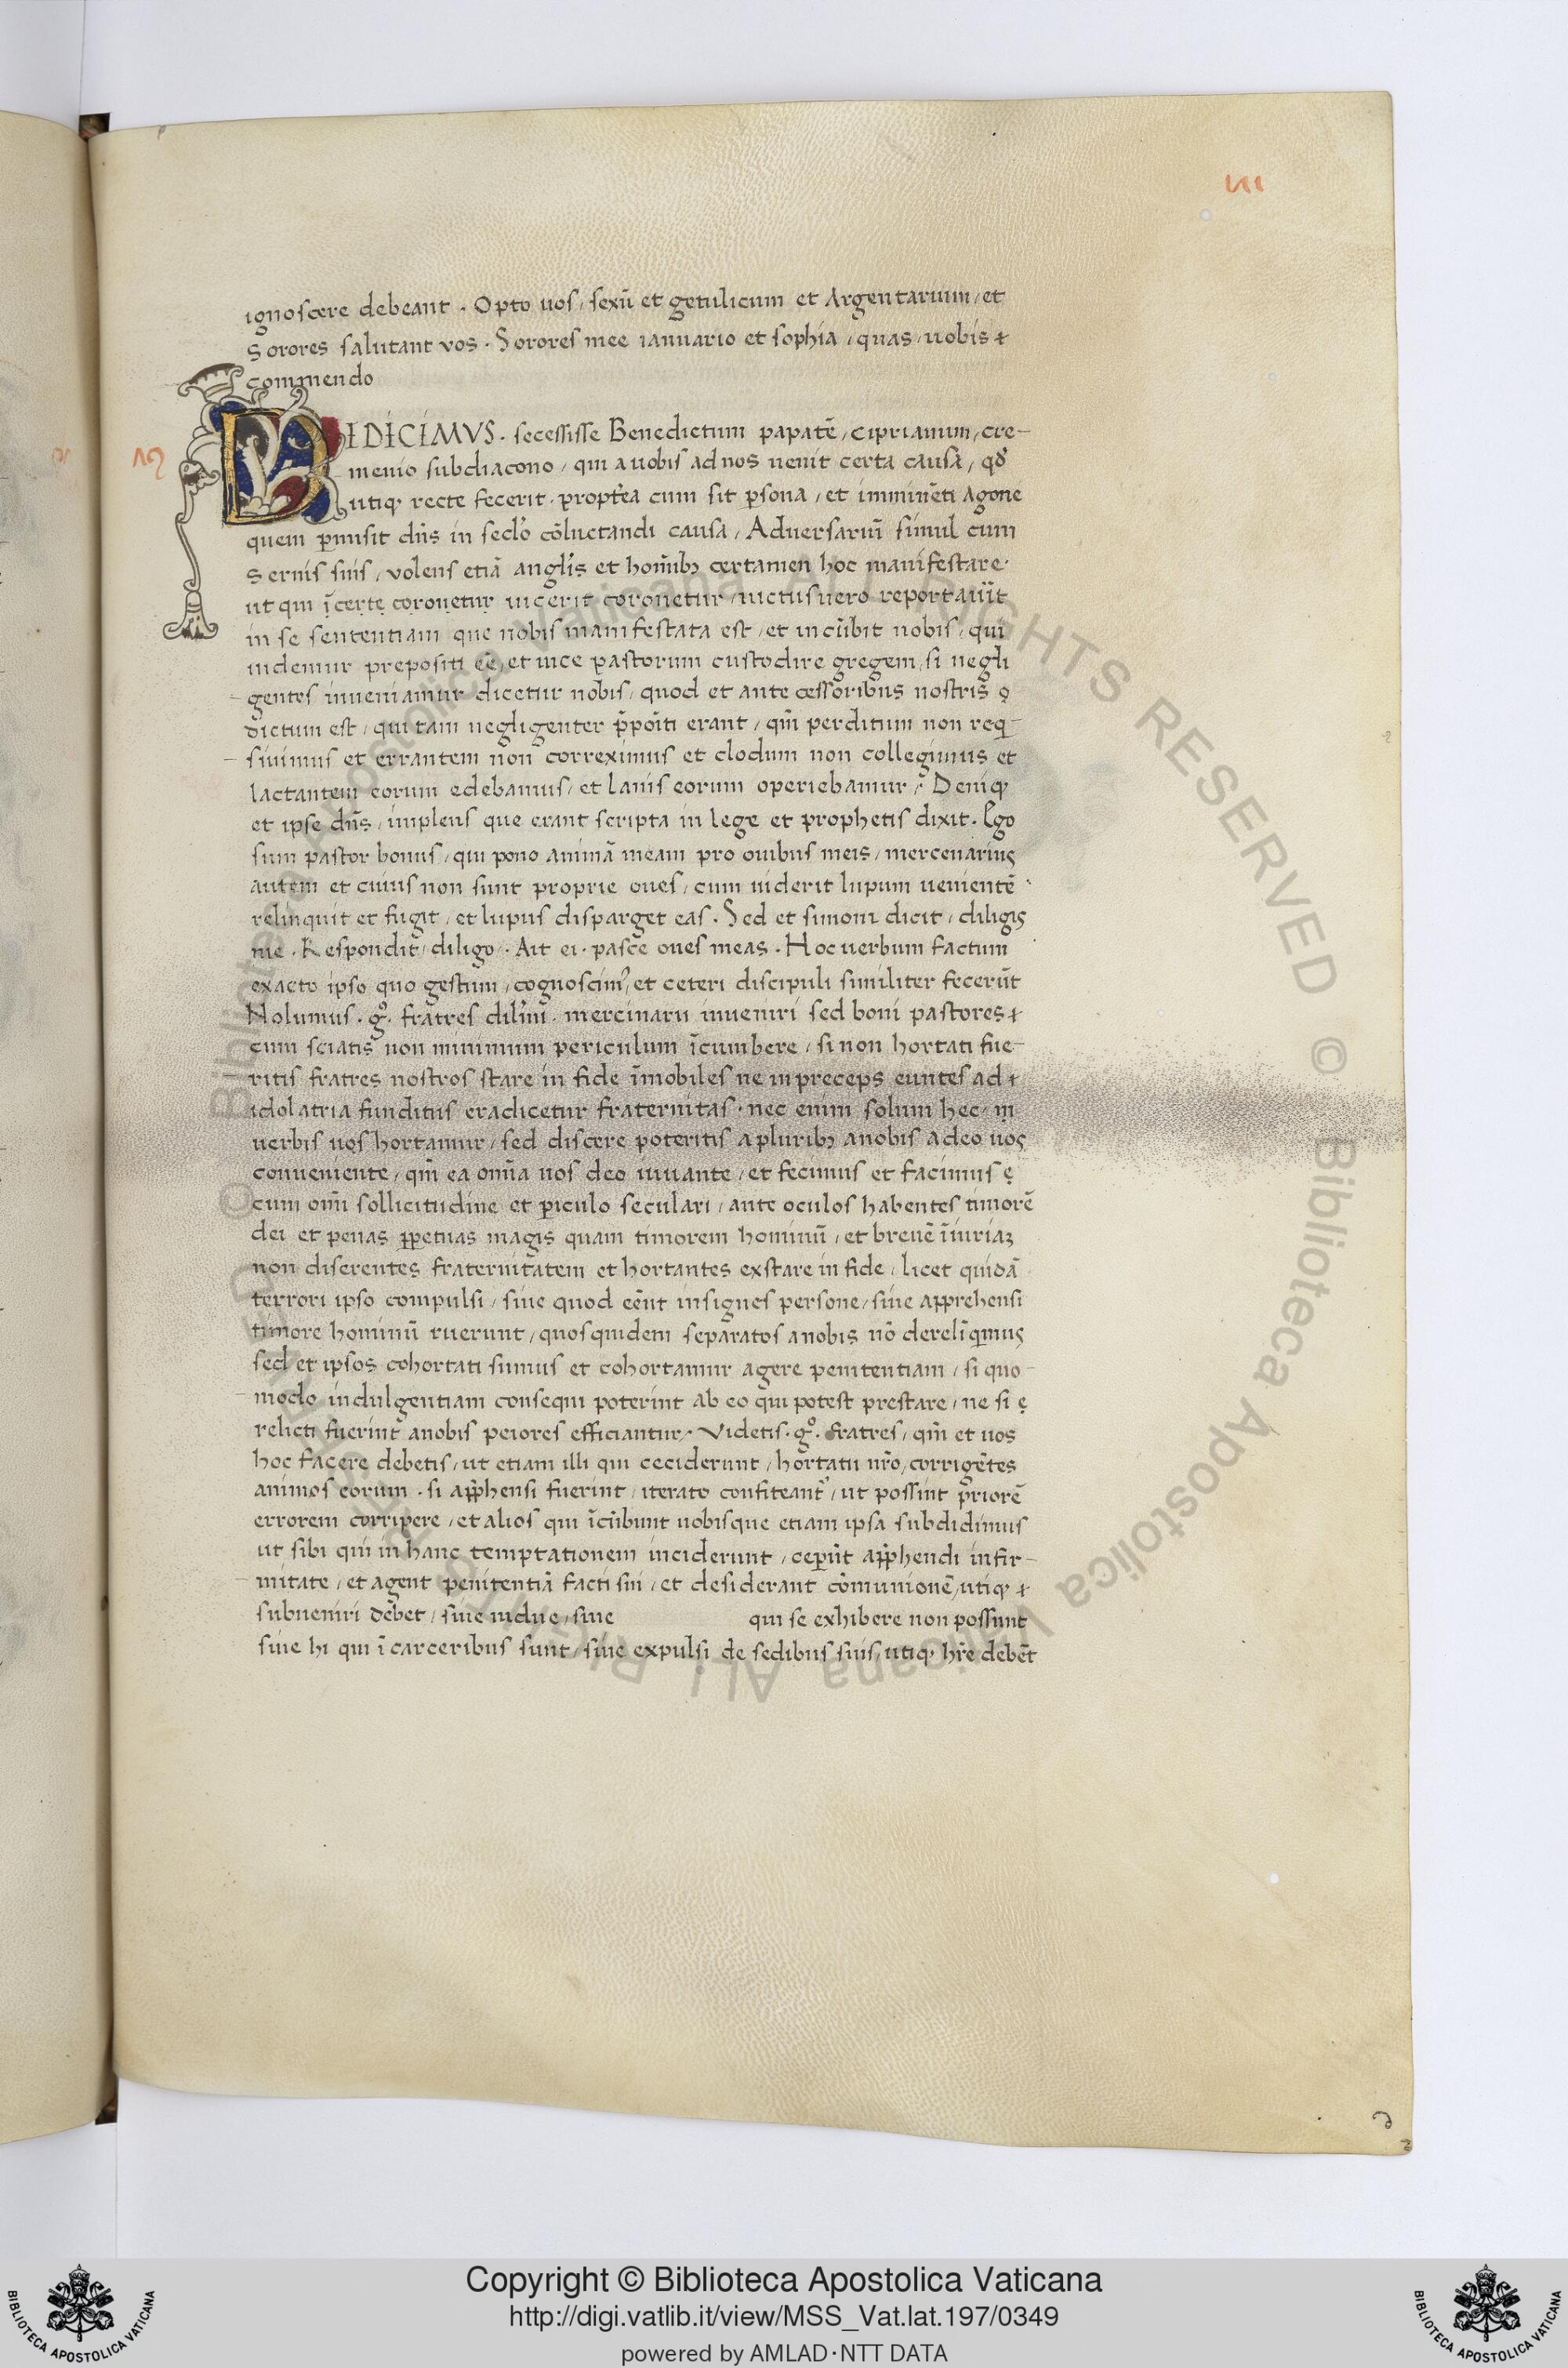 ignoscere debeant . Opto uos / sexũ et getulicum et Argentarium / et
Sorores salutant vos . Sorores mee ianuario et sophia / quas / uobis
commendo
BIDICIMVS . secessisse Benedictum papatẽ / ciprianum / cre-
menio subdiacono / qui a uobis ad nos uenit certa causa / qđ
utiqꝫ recte fecerit . propt̃ea cum sit ꝑsona / et imminẽti Agone
quem ꝑmisit dñs in seclõ cõluctandi causa / Adversariũ simul cum
Seruis suis / volens etiã anglis et homibꝫ certamen hoc manifestare .
ut qui ĩcerte coronetur uicerit coronetur / uictus uero reportauit
in se sententiam que nobis manifestata est / et incũbit nobis / qui
uidemur prepositi eẽ / et uice pastorum custodire gregem / si negli
gentes inueniamur dicetur nobis / quod et ante cessoribus nostris
dictum est / qui tam negligenter p̃põiti erant / qm̃ perditum non req-
siuimus et errantem non correximus et clodum non collegimus et
lactantem eorum edebamus / et lanis eorum operiebamur / Deniqꝫ
et ipse dñs / implens que erant scripta in lege et prophetis dixit . Ego
sum pastor bonus / qui pono animã meam pro ouibus meis / mercenarius
autem et cuius non sunt proprie oues / cum uiderit lupum uenientẽ
relinquit et fugit / et lupus disparget eas . Sed et simoni dicit / diligis
me . Respondit / diligo / . Ait ei . pasce oues meas . Hoc uerbum factum
exacto ipso quo gestum / cognoscim᾽ / et ceteri discipuli similiter fecerũt
Nolumus . gº . fratres dilm̃ . mercinarii inueniri sed boni pastores
cum sciatis non minimum periculum ĩcumbere / si non hortati fue-
ritis fratres nostros stare in fide ĩmobiles ne in preceps euntes ad
idolatria funditus eradicetur fraternitas . nec enim solum hec in
uerbis uos hortamur / sed discere poteritis a pluribꝫ a nobis adeo uos
conueniente / qm̃ ea omĩa nos deo iuuante / et fecimus et facimus
cum om̃i sollicitudine et ꝑiculo seculari / ante oculos habentes timorẽ
dei et penas ꝑpetuas magis quam timorem hominũ / et breuẽ ĩiuriaꝫ
non diserentes fraternitatem et hortantes exstare in fide / licet quidã
terrori ipso compulsi / siue quod eẽnt insignes persone / siue apprehensi
timore hominũ ruerunt / quos quidem separatos a nobis nõ derelĩqimus
sed et ipsos cohortati sumus et cohortamur agere penitentiam / si quo-
modo indulgentiam consequi poterint ab eo qui potest prestare / ne si
relicti fuerint a nobis peiores efficiantur / Videtis . gº . fratres / qm̃ et uos
hoc facere debetis / ut etiam illi qui ceciderunt / hortatu nr̃o / corrigẽtes
animos eorum . si app̃hensi fuerint / iterato confiteant᾽ / ut possint priorẽ
errorem corripere / et alios qui ĩcũbunt uobisque etiam ipsa subdidimus
ut sibi qui in hanc temptationem inciderunt / ceperũt app̃hendi infir-
mitate / et agent penitentiã facti sui / et desiderant cõmunionẽ / utiqꝫ
subueniri debet / siue uidue / siue qui se exhibere non possunt
siue hi qui ĩ carceribus sunt / siue expulsi de sedibus suis / utiqꝫ hr̃e debẽt
© Biblioteca Apostolica Vaticana ALL RIGHTS RESERVED
Copyright © Biblioteca Apostolica Vaticana
http://digi.vatlib.it/view/MSS_Vat.lat.197/0349
powered by AMLAD·NTT DATA
BIBLIOTECA APOSTOLICA VATICANA
BIBLIOTECA APOSTOLICA VATICANA